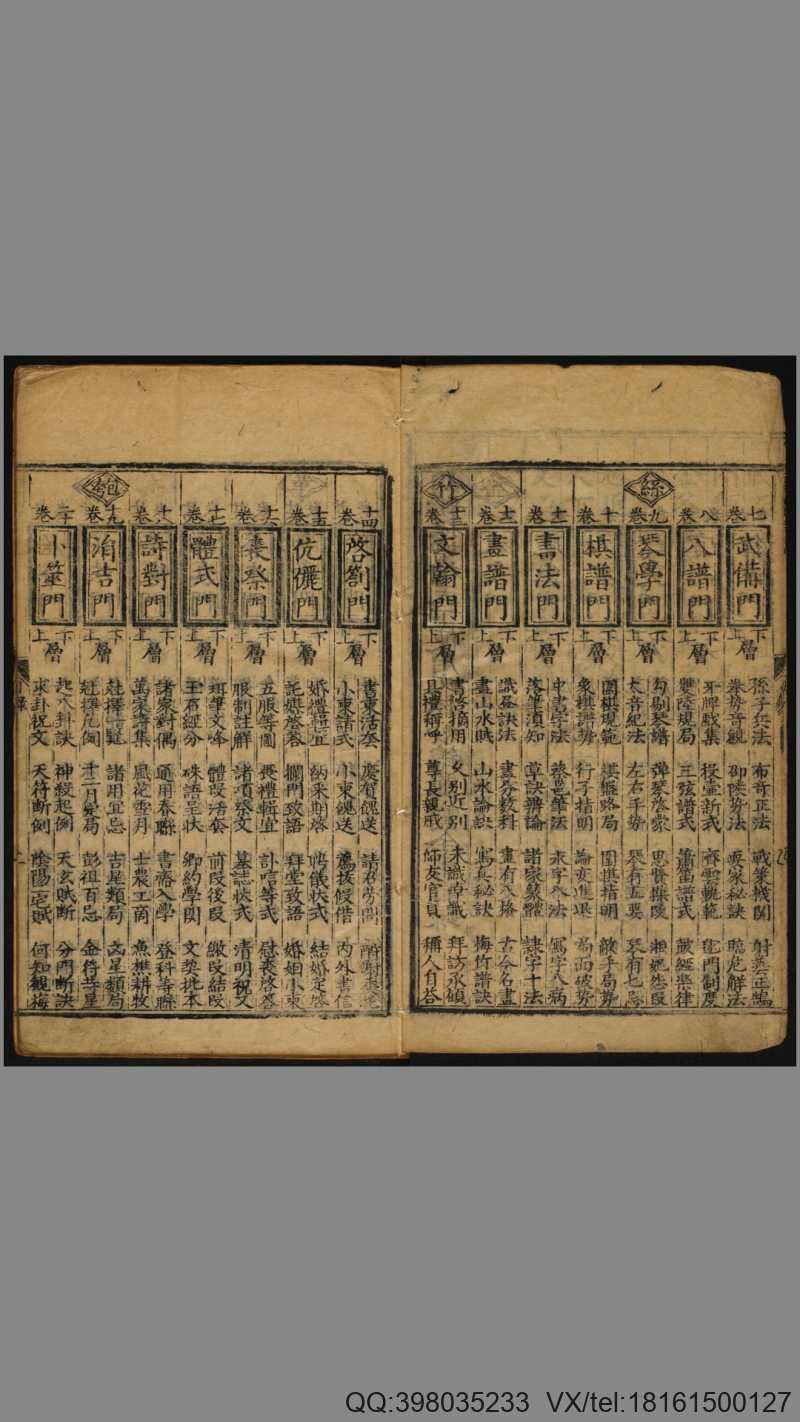 絲
竹
七卷
武備門
下上層
孫子兵法 布奇正法 戰策機関 射
拳勢音観 邵陵勢法 臨危解法
八卷
八譜門
下上層
牙牌戲集 投壺新式 齊雲軌範 毬門制度
雙陸規局 三弦譜式 簫笛譜式
九卷
琴學門
下上層
勾剔琴譜 弾琴啓蒙 思賢操
大音紀法 左右手勢 琴有五要 琴有七忌
十卷
棋譜門
下上層
圍棋規範 棋經略局 圍棋指明 敵手局勢
象棋譜勢 行子指明 論炮進退 局面破勢
十一卷
書法門
下上層
永字八法 寫字八病
落筆須知 草訣辨論 諸家篆體 隷字十法
十二卷
畫譜門
下上層
識畫訣法 畫分数科 畫有八格 古今名畫
畫山水賦 山水論訣 寫真秘訣 梅竹譜訣
十三卷
文翰門
下上層
書啓摘用 久别近别 未識得識 拜訪承傾
具禮稱呼 尊長親戚 師友官員 稱人自荅
匏
十四卷
啓劄門
下上層
書柬活套 慶賀餽送 請
小柬諸式 小柬餽送 薦拔假借 内外書信
十五卷
伉儷門
下上層
婚禮經宜 納采期啓 帖儀状式 結婚定啓
託媒啓荅 攔門致語 拜堂致語 婚姻小柬
十六卷
喪祭門
下上層
五服等圖 喪禮輯宜 訃唁等式 慰喪啓荅
服制註解 諸項祭文 墓誌状式 清明祝文
十七卷
體式門
下上層
珥筆文峰 體段活套 前段後段 繳段結段
玉石經分 硃語呈状 郷約學関 文契批本
十八卷
詩對門
下上層
諸家對偶 通用春聯 書齋入學 登科等聯
萬家詩集 風花雪月 士農工商 魚樵耕牧
十九卷
涓吉門
下上層
諸用宜忌 吉星類局 凶星類局
十二月変局 彭祖百忌 金符
二十卷
卜筮門
下上層
起六卦訣 神殺起例 天玄賦断 分門断訣
求卦祝文 天符断例 陰陽 何知觀梅
QQ:398035233 VX/tel:18161500127